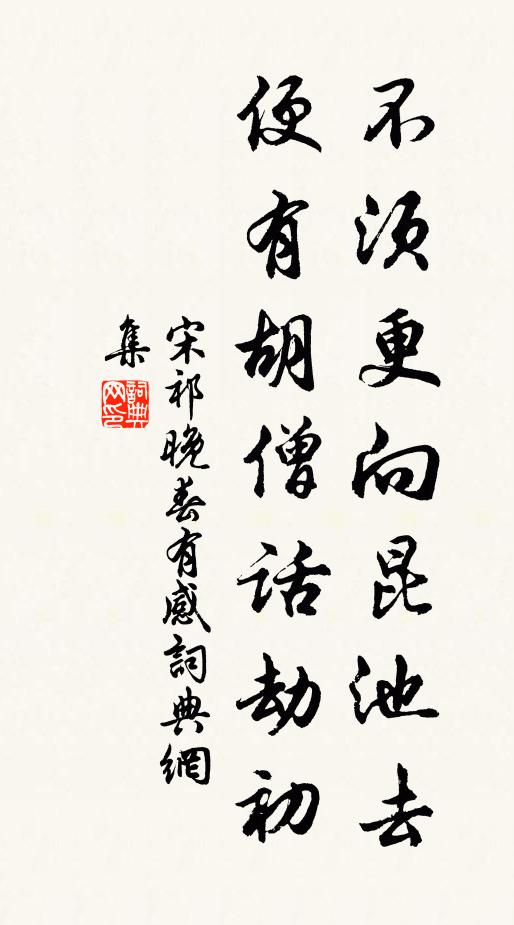 不須更向昆池去
便有胡僧話劫初
宋祁晚春有感詞典網
集
詞典
网印